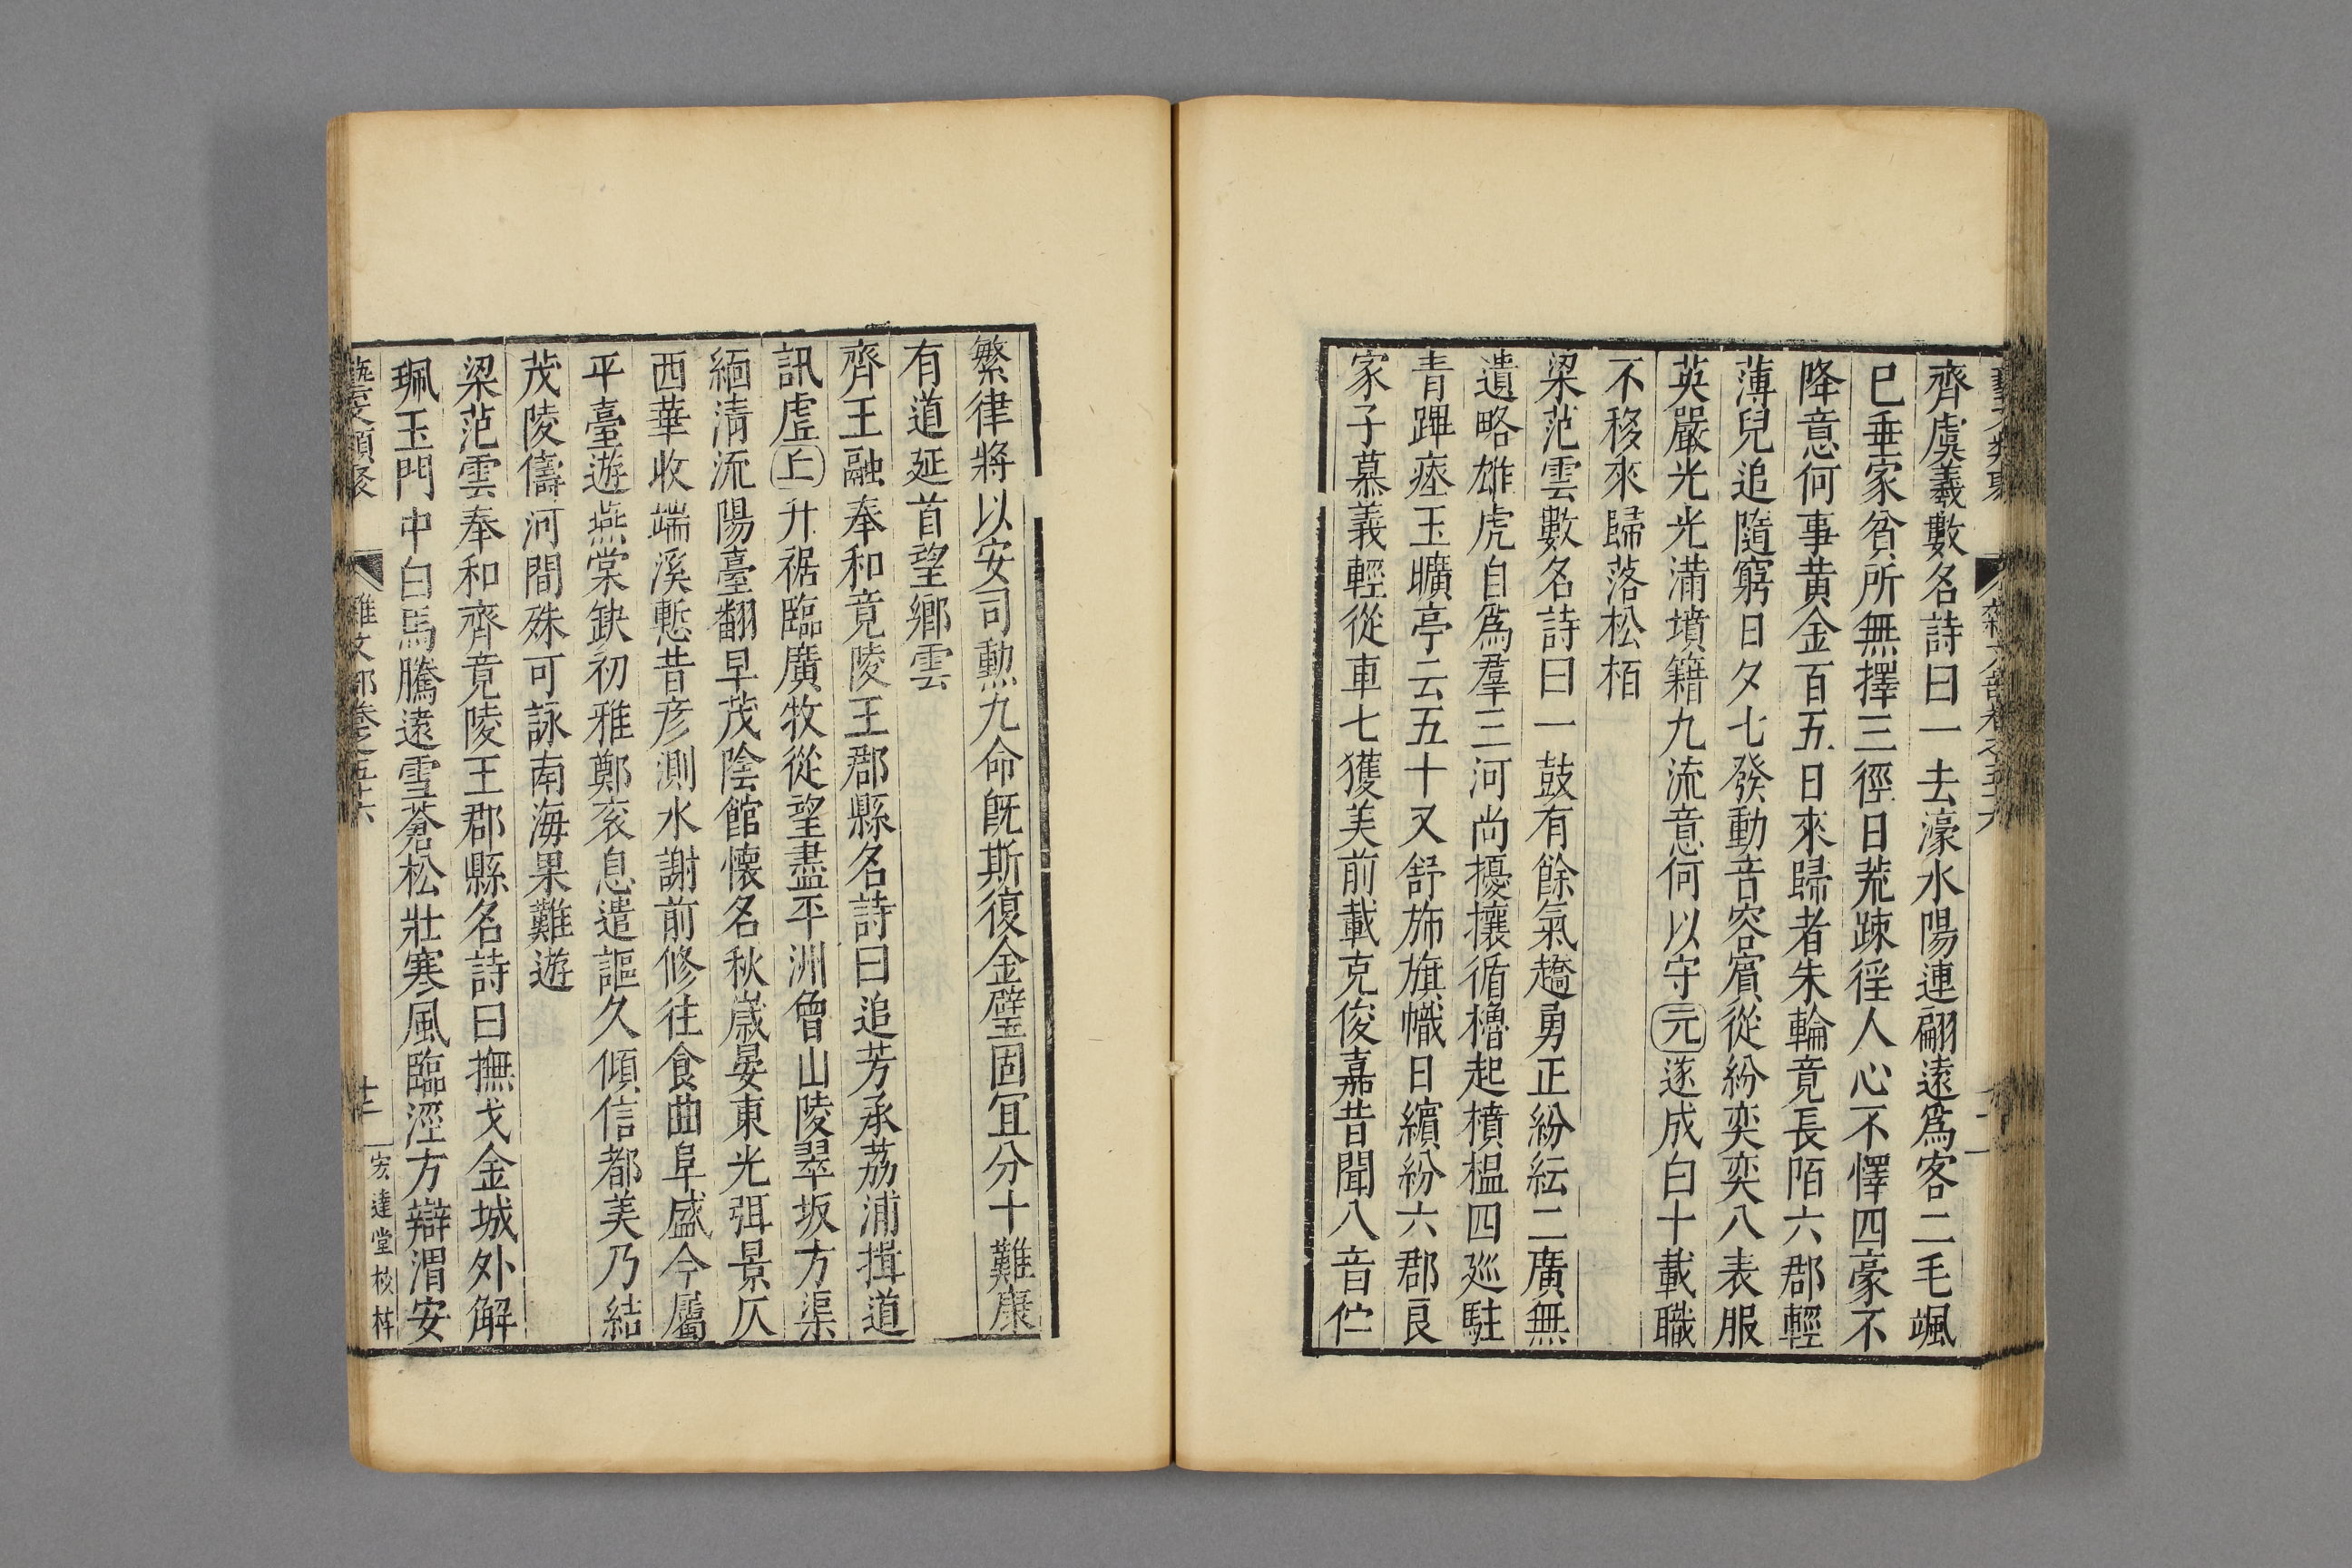 齊虞羲數名詩曰一去濠水陽連翩遠爲客二毛颯
巳垂家貧所無擇三徑日荒踈徑人心不懌四豪不
降意何事黄金百五日來歸者朱輪竟長陌六郡輕
薄兒追隨窮日夕七發動音容賓從紛奕奕八表服
英嚴光光滿墳籍九流意何以守元遂成白十載職
不移來歸落松栢
梁范雲數名詩曰一鼓有餘氣趫勇正紛紜二廣無
遺略雄虎自爲羣三河尚擾攘循櫓起樍榅四巡駐
青蹕瘞玉曠亭云五十又舒斾旗幟日繽紛六郡良
家子慕義輕從車七獲美前載克俊嘉昔聞八音伫
繁律將以安司勲九命旣斯復金璧固宜分十難康
有道延首望鄉雲
齊王融奉和竟陵王郡縣名詩曰追芳承荔浦揖道
訊虛上升裾臨廣牧從望盡平洲曾山陵翠坂方渠
緬清流陽臺翻早茂陰館懷名秋歲晏東光弭景仄
西華收端溪慙昔彦測水謝前修往食曲阜盛今屬
平臺遊燕棠缺初雅鄭衮息遣謳久傾信都美乃結
茂陵儔河間殊可詠南海果難遊
梁范雲奉和齊竟陵王郡縣名詩曰撫戈金城外解
珮玉門中白馬騰遠雪蒼松壯寒風臨涇方辯渭安
藝文類聚 雜文部卷之五十六 宏達堂校栞